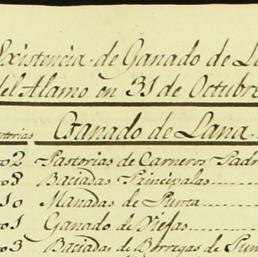 Existencia de Ganado de La
del Alamo en 31 de Octubre
Pastorias Ganado de Lana
02 Pastorias de Carneros Padr
08 Baciadas Principales
10 Manadas de Punta
01 Ganado de Viejas
03 Baciadas de Borregas de Pun